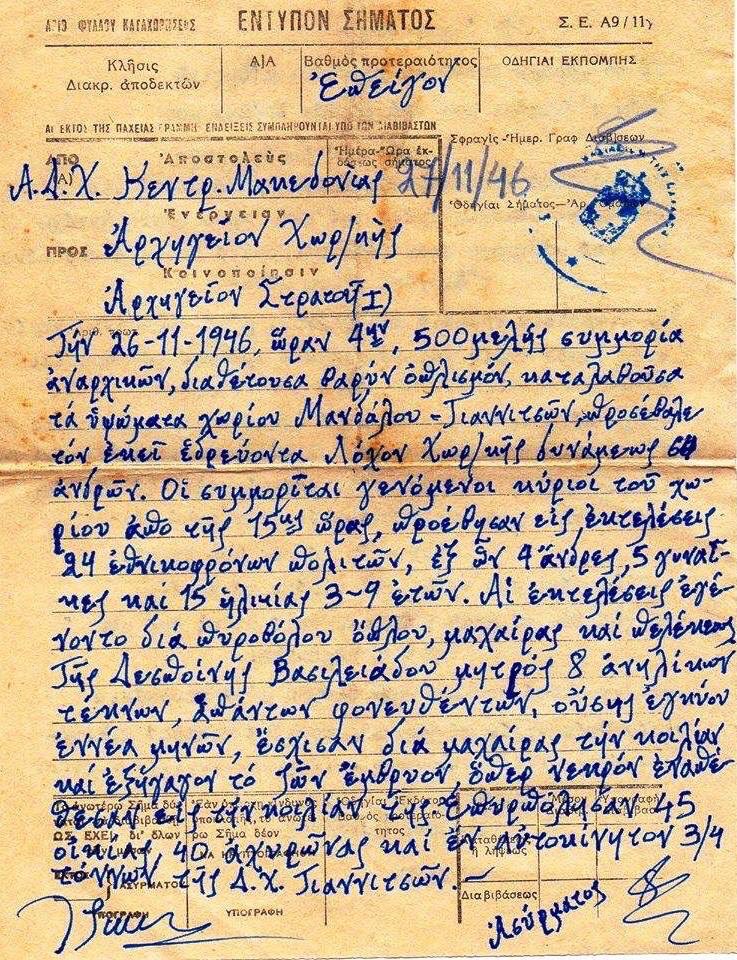 ΑΡΙΘ ΦΥΛΛΟΥ ΚΑΤΑΧΩΡΗΣΕΩΣ ΕΝΤΥΠΟΝ ΣΗΜΑΤΟΣ Σ. Ε. Α9/11γ
Κλῆσις Διακρ. ἀποδεκτῶν
Α|Α
Βαθμὸς προτεραιότητος
Ἐπείγον
ΟΔΗΓΙΑΙ ΕΚΠΟΜΠΗΣ
ΑΙ ΕΚΤΟΣ ΤΗΣ ΠΑΧΕΙΑΣ ΓΡΑΜΜΗΣ ΕΝΔΕΙΞΕΙΣ ΣΥΜΠΛΗΡΟΥΝΤΑΙ ΥΠΟ ΤΩΝ ΔΙΑΒΙΒΑΣΤΩΝ
Σφραγὶς - Ἡμερ. Γραφ Διαβ)σεων
ΑΠΟ (Α) Ἀποστολεὺς
Ἡμέρα-Ὥρα ἐκδόσεως σήματος
Α.Δ.Χ. Κεντρ. Μακεδονίας 27/11/46
Ὁδηγίαι Σήματος—Ἀρ.
Ἐνέργειαν
ΠΡΟΣ Ἀρχηγεῖον Χωρ/κῆς
Κοινοποίησιν
Ἀρχηγεῖον Στρατοῦ
Τήν 26-11-1946, ὥραν 4ην, 500μελής συμμορία
ἀναρχικῶν, διαθέτουσα βαρύν ὁπλισμόν, καταλαβοῦσα
τά ὑψώματα χωρίου Μανδάλου - Γιαννιτσῶν, προσέβαλε
τόν ἐκεῖ ἑδρεύοντα Λόχον Χωρ/κῆς δυνάμεως
ἀνδρῶν. Οἱ συμμορῖται γενόμενοι κύριοι τοῦ χω-
ρίου ἀπό τῆς 15ης ὥρας, προέβησαν εἰς ἐκτελέσεις
24 ἐθνικοφρόνων πολιτῶν, ἐξ ὧν 4 ἄνδρες, 5 γυναῖ-
κες καί 15 ἡλικίας 3-9 ἐτῶν. Αἱ ἐκτελέσεις ἐγέ-
νοντο διά πυροβόλου ὅπλου, μαχαίρας καί πελέκεως
Τῆς Δεσποίνης Βασιλειάδου μητρός 8 ἀνηλίκων
τέκνων, ἁπάντων φονευθέντων, οὔσης ἐγκύου
ἐννέα μηνῶν, ἔσχισαν διά μαχαίρας τήν κοιλίαν
καί ἐξήγαγον τό ζῶν ἔμβρυον, ὅπερ νεκρόν ἐναπέ-
θεσαν εἰς τήν κοιλίαν της. Ἐπυρπόλησαν 45
οἰκίας 40 ἀχυρῶνας καί ἕν αὐτοκίνητον 3/4
τόννων τῆς Δ.Χ. Γιαννιτσῶν.-
ΥΠΟΓΡΑΦΗ
ΥΠΟΓΡΑΦΗ
Διαβιβάσεως
Ἀσύρματος